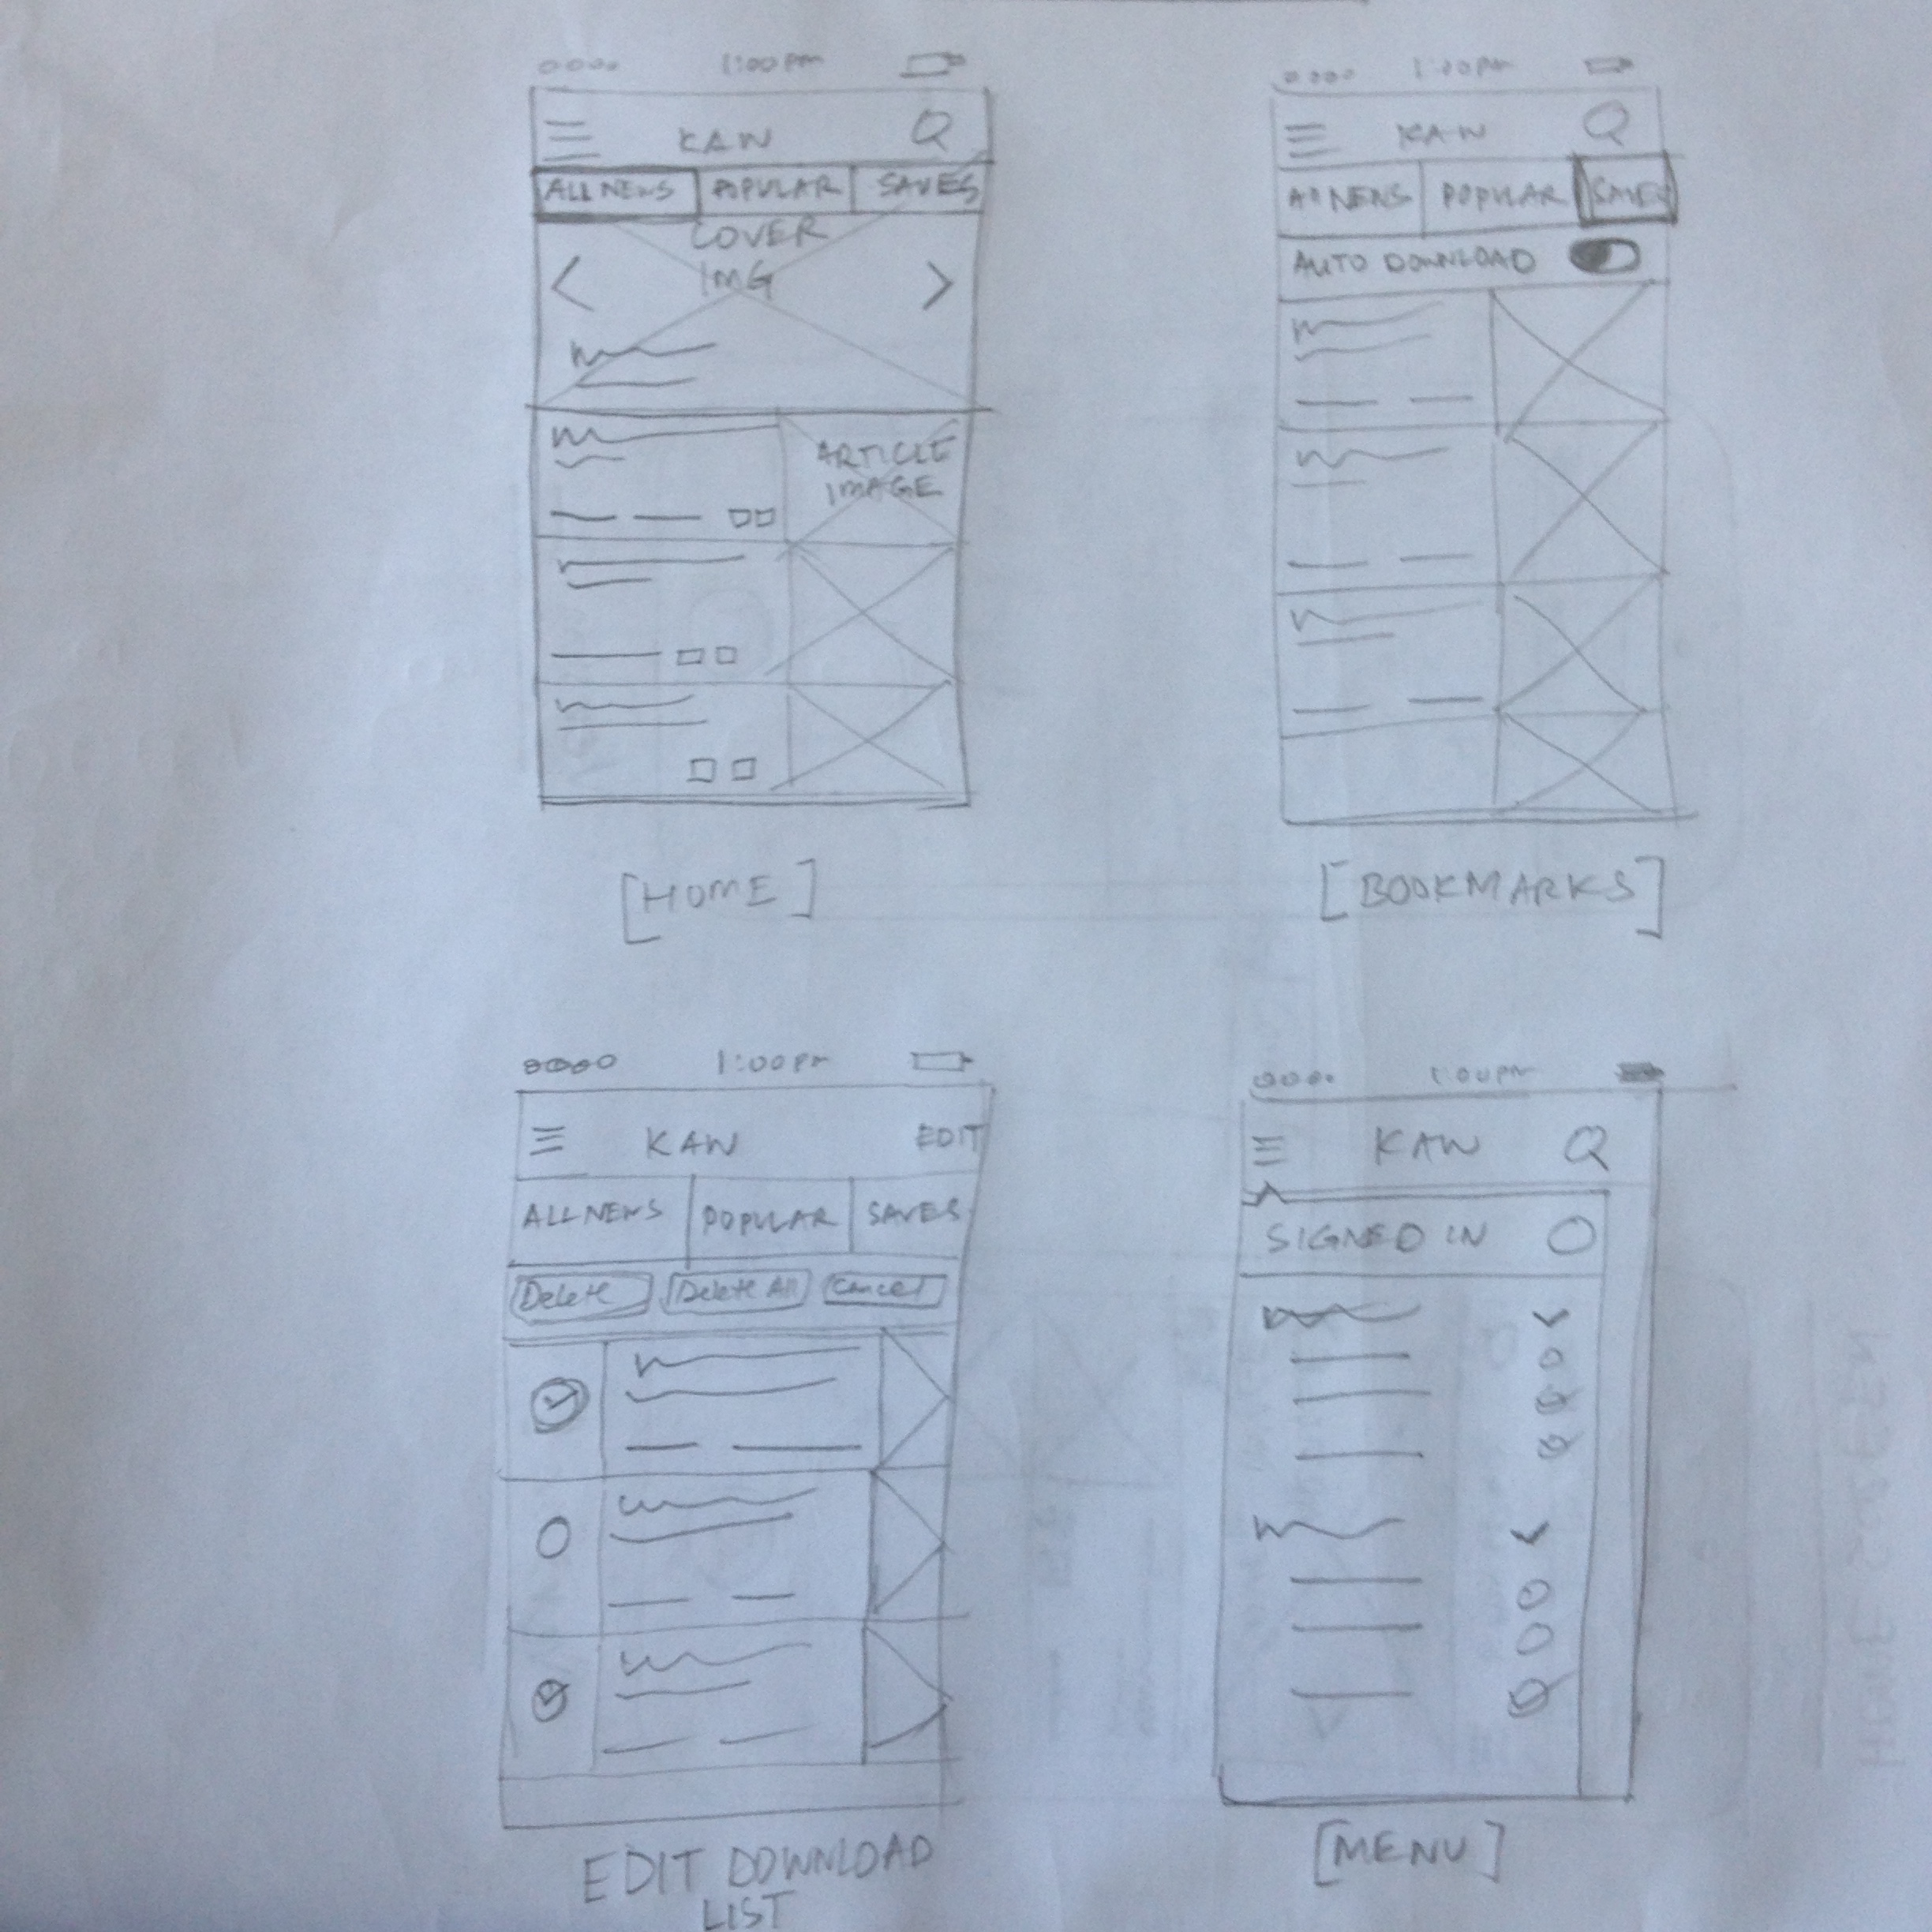 1:00 PM
KAW
ALL NEWS POPULAR SAVES
COVER
IMG
ARTICLE
IMAGE
[HOME]
1:00 PM
KAW
POPULAR SAVES
AUTO DOWNLOAD
[BOOKMARKS]
1:00 PM
KAW EDIT
ALL NEWS POPULAR SAVES
Delete Delete All Cancel
EDIT DOWNLOAD
LIST
1:00 PM
KAW
SIGNED IN
[MENU]